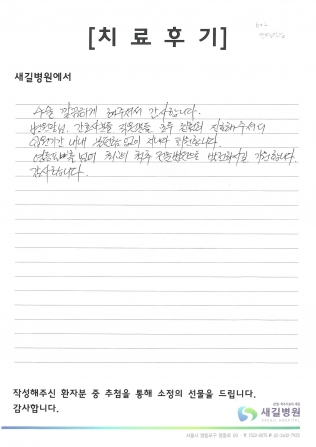 [치료후기]
새길병원에서
수술 깔끔하게 해주셔서 감사합니다.
병원장님, 간호사분들 직원분들 모두 친절히 치료해주셔서
입원기간 내내 불편함 없이 지내다 퇴원합니다.
영등포를 넘어 최고의 척추 전문병원으로 발전하시길 기원합니다.
감사합니다.
작성해주신 환자분 중 추첨을 통해 소정의 선물을 드립니다.
감사합니다.
새길병원